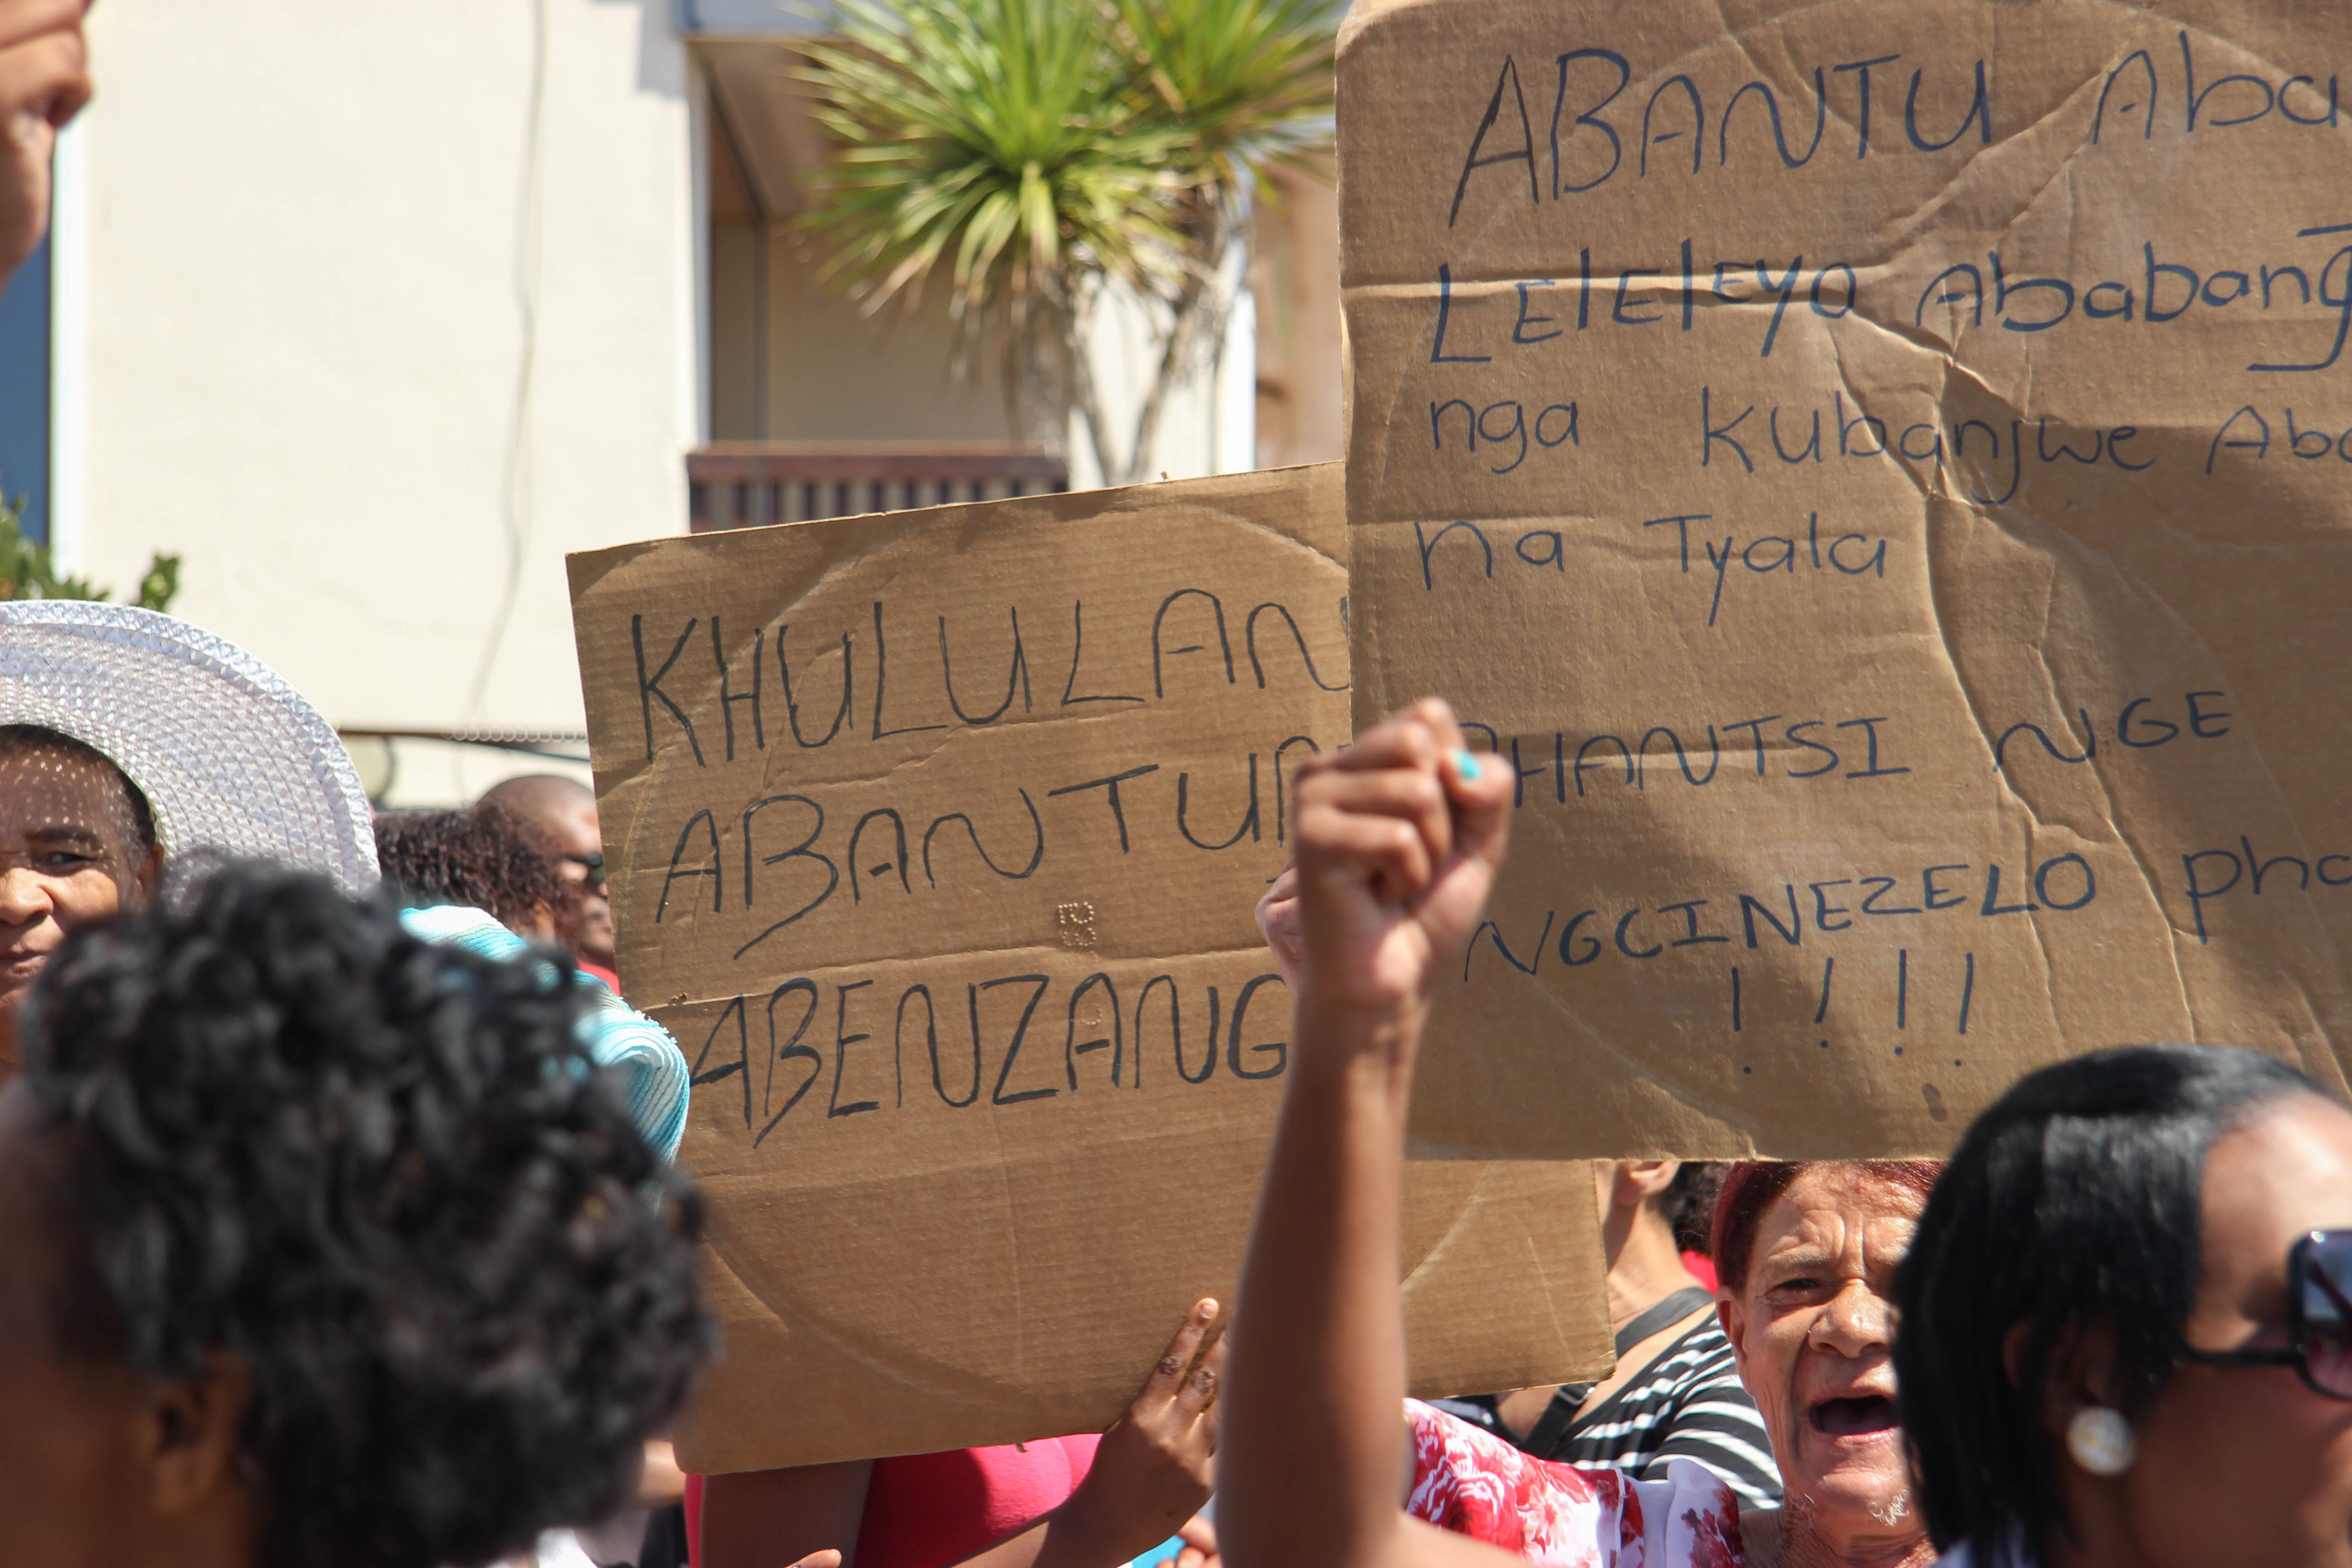 KHULULAN
ABANTU
ABENZANG
ABANTU Aba
Leleleyo Ababang
nga Kubanjwe Aba
na Tyala
PHANTSI NGE
NGCINEZELO pha
!!!!